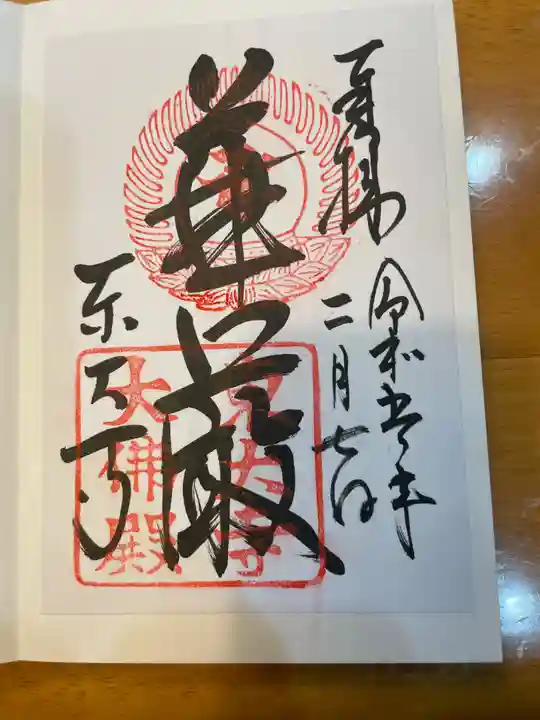 奉拝
令和五年
二月七日
華厳
東大寺
東大寺
大佛殿